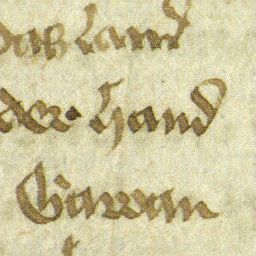 das land
der hand
Gawan